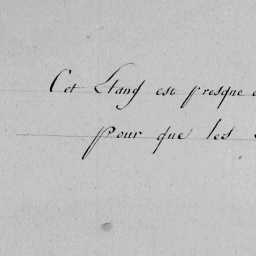 Cet Etang est presque
pour que les